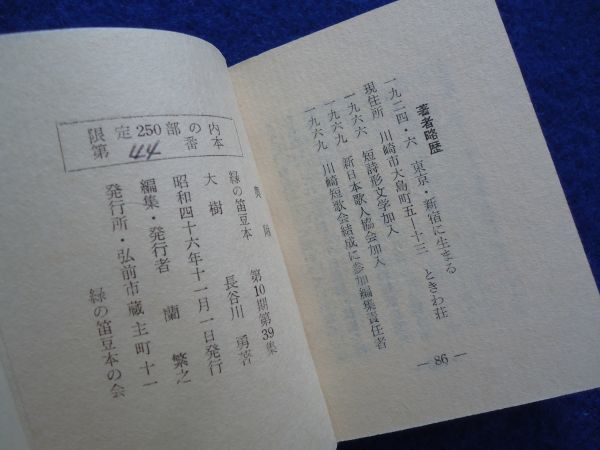 著者略歴
一九二四・六　東京・新宿に生まる
現住所　川崎市大島町五―十三　ときわ荘
一九六六　短詩形文学加入
一九六九　新日本歌人協会加入
一九六九　川崎短歌会結成に参加編集責任者
― 86 ―
奥附
緑の笛豆本　第10期第39集
大樹　長谷川　勇著
昭和四十六年十一月一日発行
編集・発行者　蘭　繁之
発行所・弘前市蔵主町十一
緑の笛豆本の会
内本
の番
部
250
定
限第
44